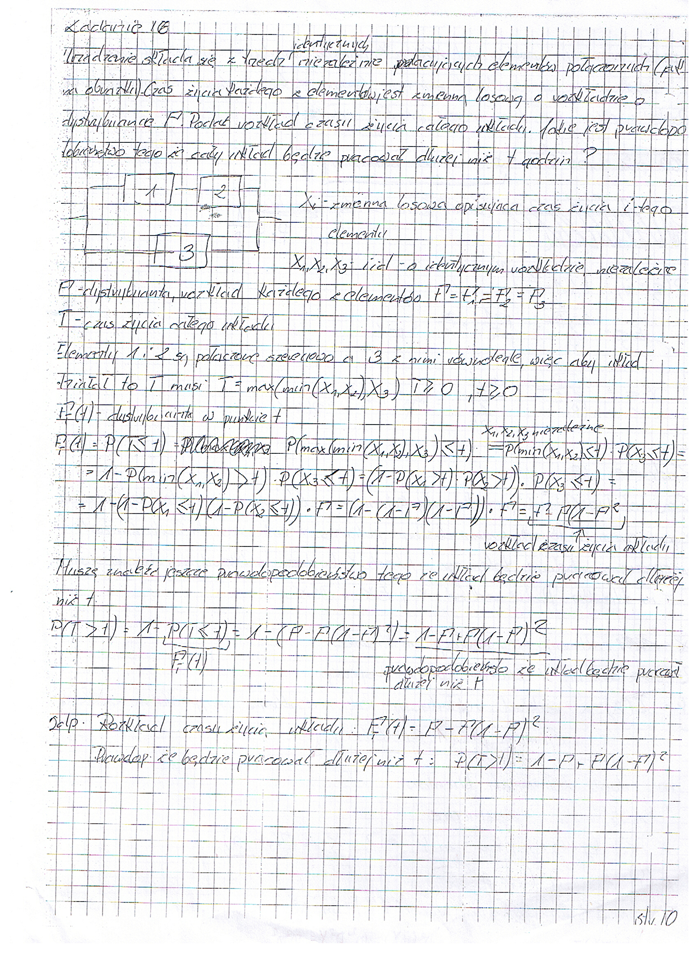 Zadanie 16
identycznych
Urządzenie składa się z trzech niezależnie pracujących elementów połączonych (jak
na obrazku). Czas życia każdego z elementów jest zmienną losową o rozkładzie o
dystrybuancie F. Podać rozkład czasu życia całego układu. Jakie jest prawdopo
dobieństwo tego że cały układ będzie pracował dłużej niż t godzin?
1 2
3
Xi - zmienna losowa opisująca czas życia i-tego
elementu
X1, X2, X3 - iid - o identycznym rozkładzie, niezależne
F - dystrybuanta, rozkład każdego z elementów F = F1 = F2 = F3
T - czas życia całego układu
Elementy 1 i 2 są połączone szeregowo a 3 z nimi równolegle, więc aby układ
działał to T musi T = max(min(X1,X2),X3) T ≥ 0 , t ≥ 0
FT(t) - dystrybuanta w punkcie t
X1, X2, X3 niezależne
FT(t) = P(T ≤ t) = P(max(min(X1,X2),X3) ≤ t) = P(min(X1,X2) ≤ t) · P(X3 ≤ t) =
= 1 - P(min(X1,X2) > t) · P(X3 ≤ t) = (1 - P(X1 > t) · P(X2 > t)) · P(X3 ≤ t) =
= 1 - (1 - P(X1 ≤ t)(1 - P(X2 ≤ t)) · F = (1 - (1-F)(1-F)) · F = F - F(1-F)²
rozkład czasu życia układu
Muszę znaleźć jeszcze prawdopodobieństwo tego że układ będzie pracował dłużej
niż t.
P(T > t) = 1 - P(T ≤ t) = 1 - (F - F(1-F)²) = 1 - F + F(1-F)²
FT(t)
prawdopodobieństwo że układ będzie pracował
dłużej niż t
Odp. Rozkład czasu życia układu: FT(t) = F - F(1-F)²
Prawdop. że będzie pracował dłużej niż t: P(T > t) = 1 - F + F(1-F)²
str. 10